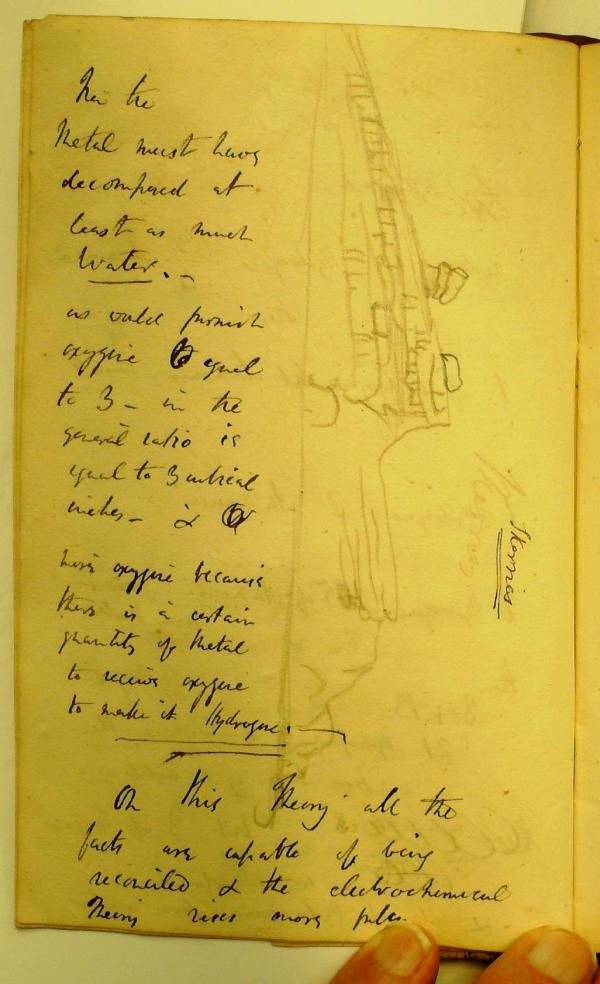 the
Metal must have
decomposed at
least as much
Water. -
as would furnish
oxygene equal
to 3 - in the
general ratio is
equal to 3 cubical
inches - &
more oxygene because
there is a certain
quantity of Metal
to receive oxygene
to make it Hydrogene.
On this Theory all the
facts are capable of being
reconciled & the electrochemical
Theory rises more
Thomas